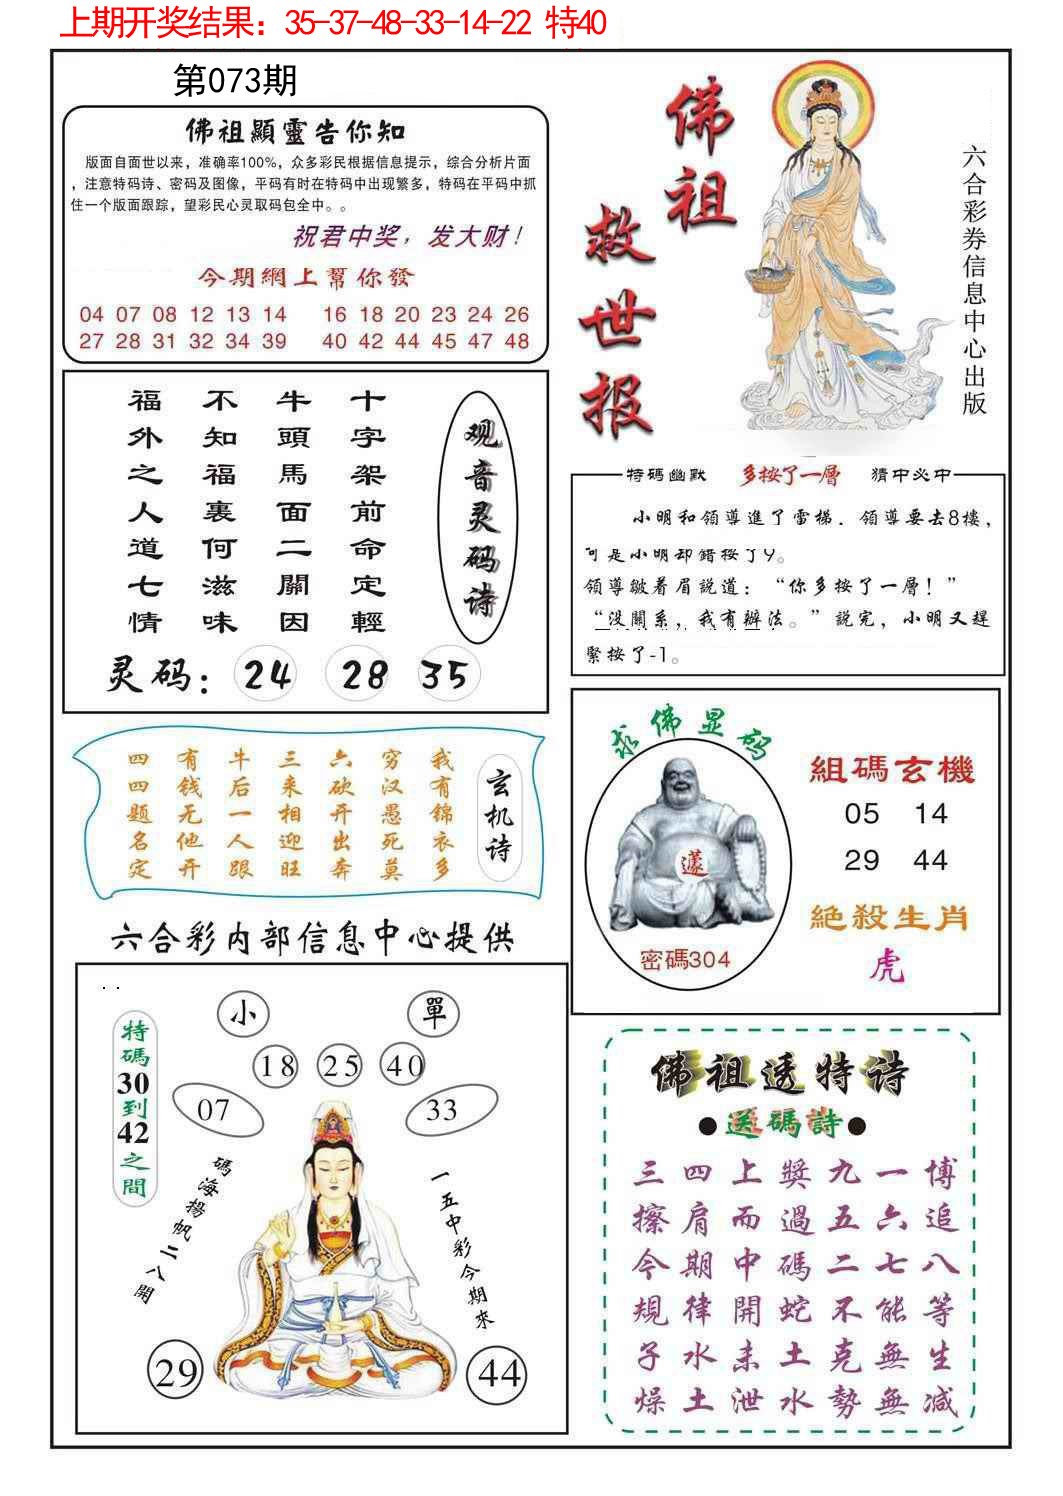 上期开奖结果：35-37-48-33-14-22 特40
第073期
佛祖顯靈告你知
版面自面世以来，准确率100%，众多彩民根据信息提示，综合分析片面
，注意特码诗、密码及图像，平码有时在特码中出现繁多，特码在平码中抓
住一个版面跟踪，望彩民心灵取码包全中。。
祝君中奖，发大财！
今期網上幫你發
04 07 08 12 13 14 16 18 20 23 24 26
27 28 31 32 34 39 40 42 44 45 47 48
佛祖
救世报
六合彩券信息中心出版
观音灵码诗
十字架前命定輕
牛頭馬面二關因
不知福裏何滋味
福外之人道七情
灵码：24 28 35
特碼幽默 多按了一層 猜中必中
小明和領導進了電梯．領導要去8樓，
可是小明却錯按了9。
領導皺着眉説道：“你多按了一層！”
“没關系，我有辦法。”説完，小明又趕
緊按了-1。
玄机诗
我有锦衣多
穷汉愚死莫
六砍开出奔
三来相迎旺
牛后一人跟
有钱无他开
四四题名定
求佛显码
蓫
密碼304
組碼玄機
05 14
29 44
絶殺生肖
虎
六合彩内部信息中心提供
..
特碼30到42之間
小 單
18 25 40
07 33
碼海揚帆二八開
一五中彩今期來
29 44
佛祖透特诗
●送碼詩●
三四上獎九一博
擦肩而過五六追
今期中碼二七八
規律開蛇不能等
子水未土克無生
燥土泄水勢無减